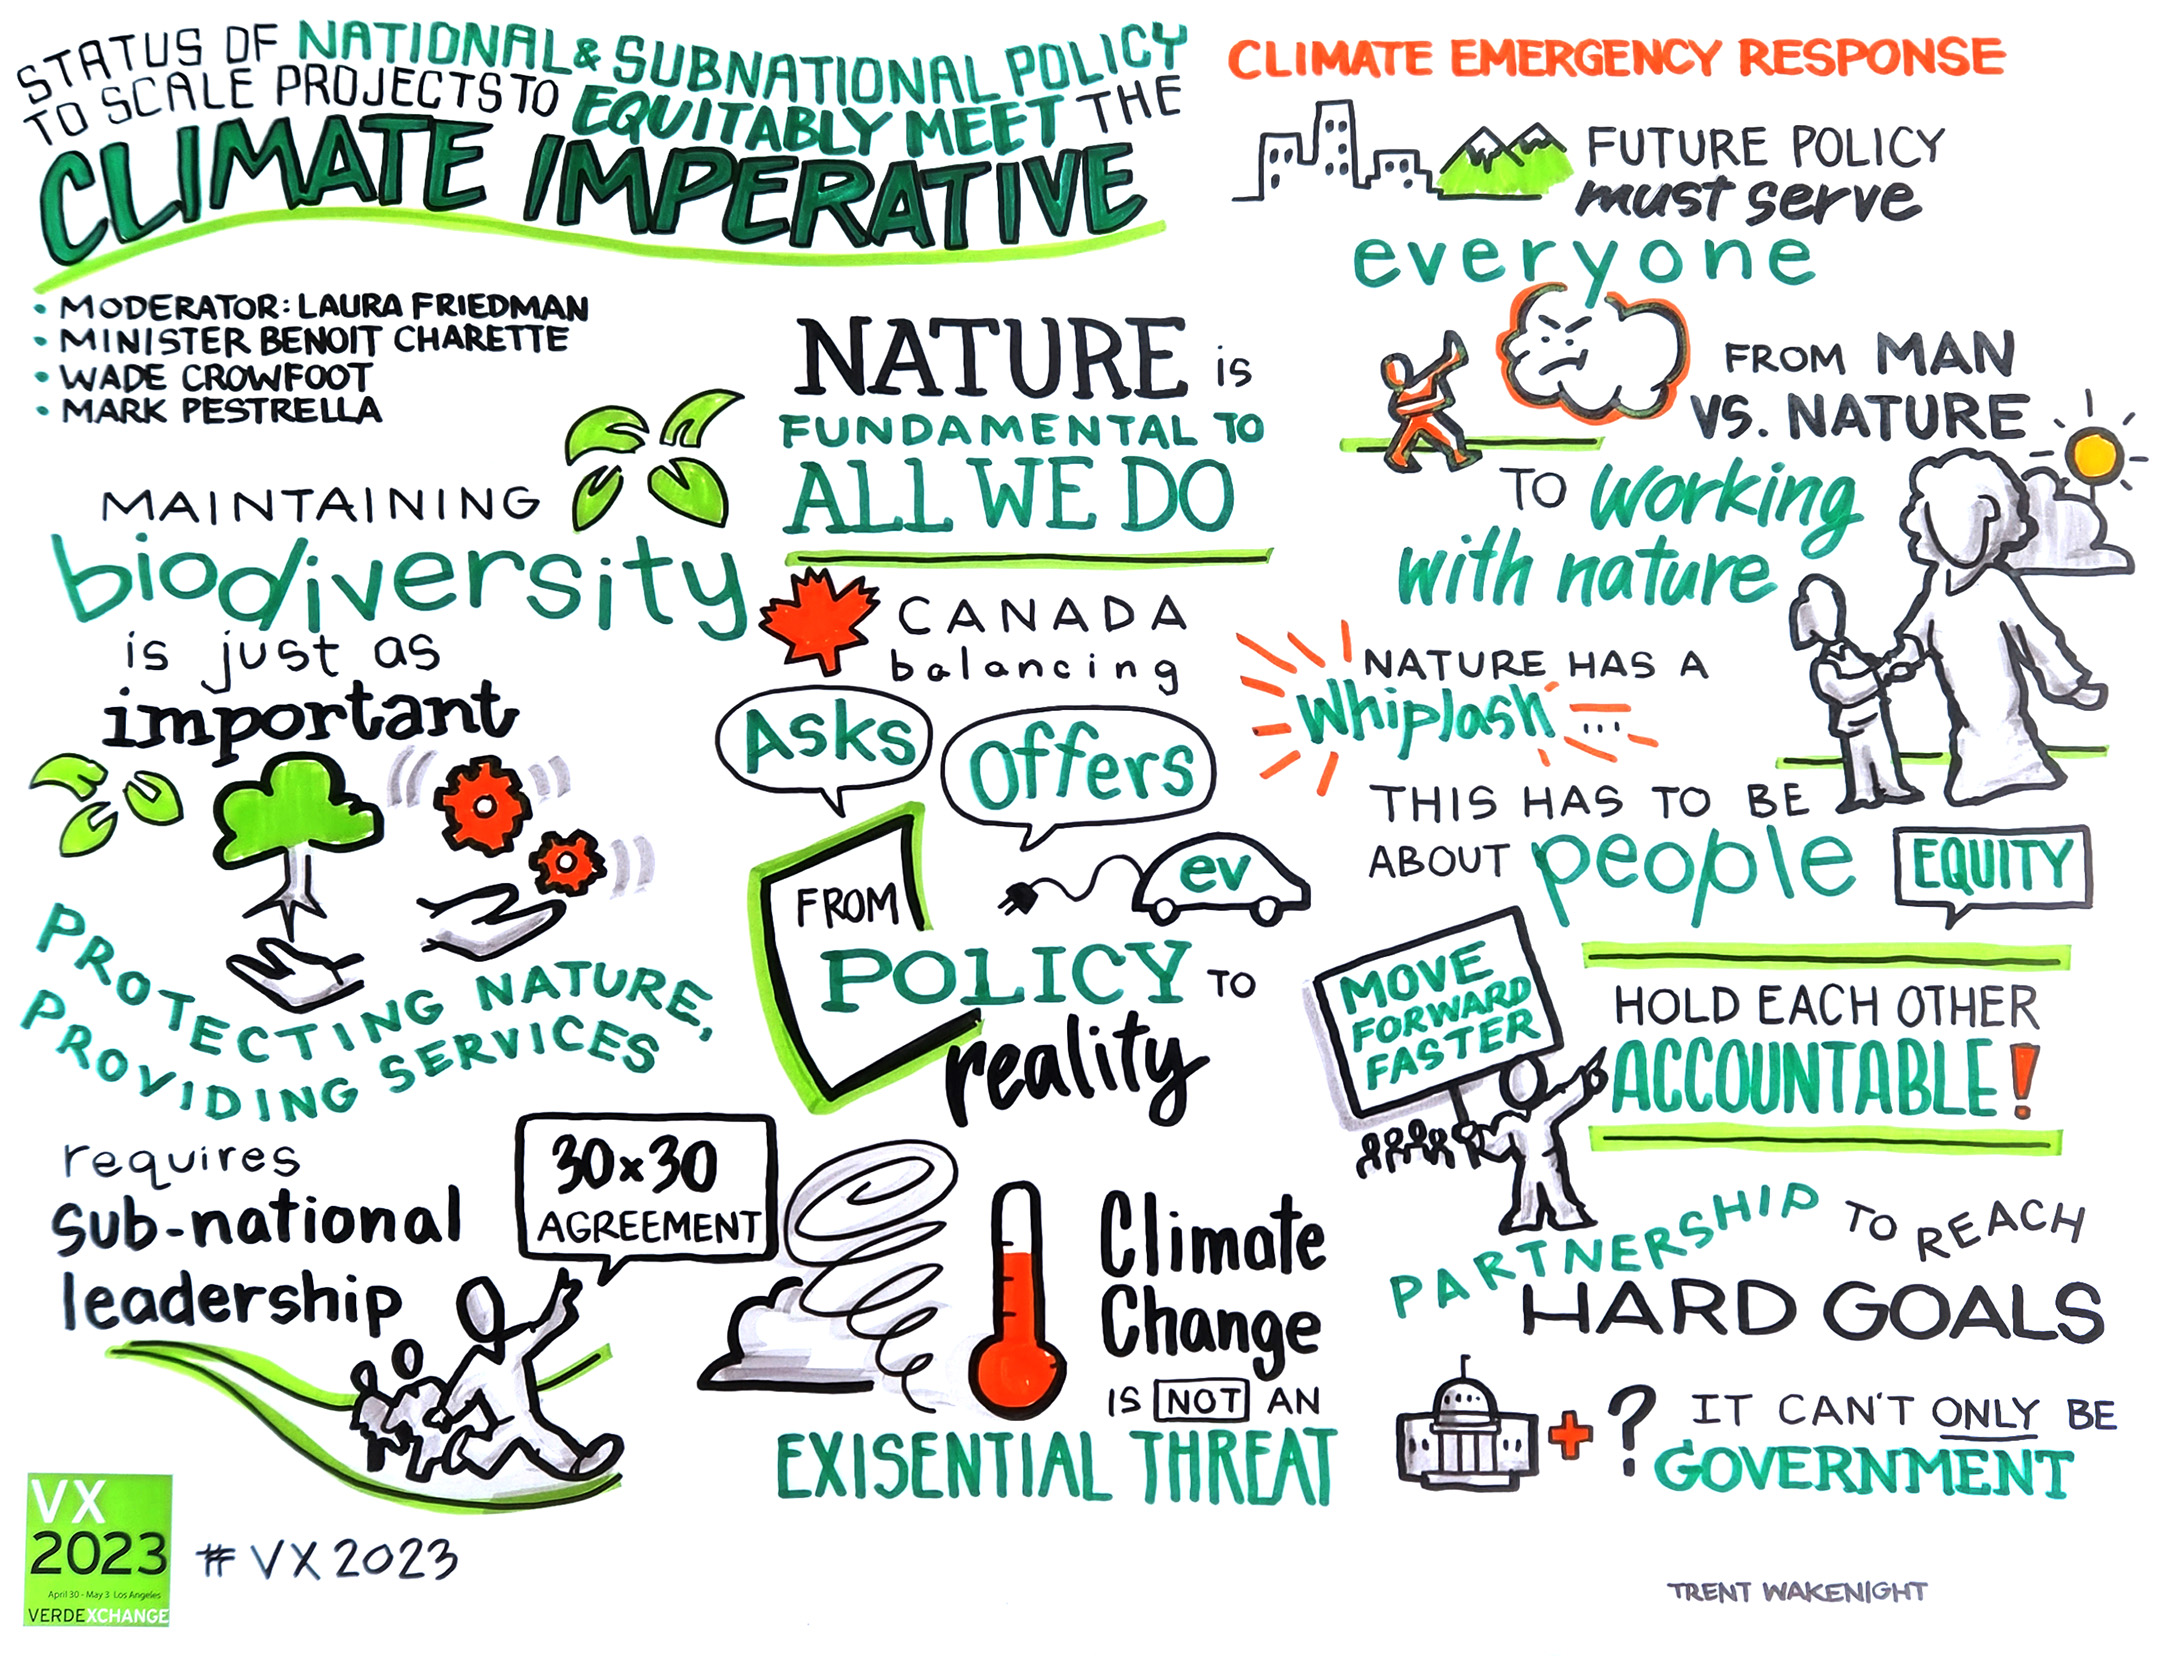 STATUS OF NATIONAL & SUBNATIONAL POLICY
TO SCALE PROJECTS TO EQUITABLY MEET THE
CLIMATE IMPERATIVE
• MODERATOR: LAURA FRIEDMAN
• MINISTER BENOIT CHARETTE
• WADE CROWFOOT
• MARK PESTRELLA
MAINTAINING
biodiversity
is just as
important
PROTECTING NATURE,
PROVIDING SERVICES
requires
sub-national
leadership
30x30
AGREEMENT
NATURE is
FUNDAMENTAL TO
ALL WE DO
CANADA
balancing
Asks
Offers
ev
FROM
POLICY TO
reality
Climate
Change
IS NOT AN
EXISENTIAL THREAT
CLIMATE EMERGENCY RESPONSE
FUTURE POLICY
must serve
everyone
FROM MAN
VS. NATURE
TO working
with nature
NATURE HAS A
Whiplash ...
THIS HAS TO BE
ABOUT people
EQUITY
MOVE
FORWARD
FASTER
HOLD EACH OTHER
ACCOUNTABLE!
PARTNERSHIP TO REACH
HARD GOALS
+ ? IT CAN'T ONLY BE
GOVERNMENT
VX
2023
April 30 - May 3 Los Angeles
VERDEXCHANGE
# VX 2023
TRENT WAKENIGHT